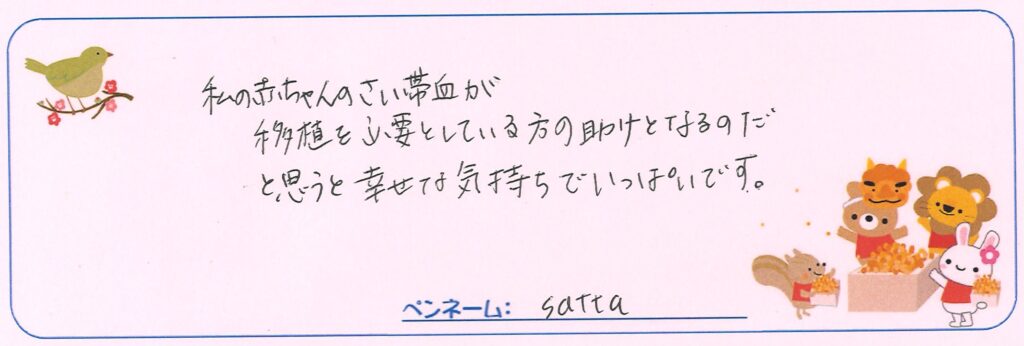 私の赤ちゃんのさい帯血が
移植を必要としている方の助けとなるのだ
と思うと幸せな気持ちでいっぱいです。
ペンネーム: satta